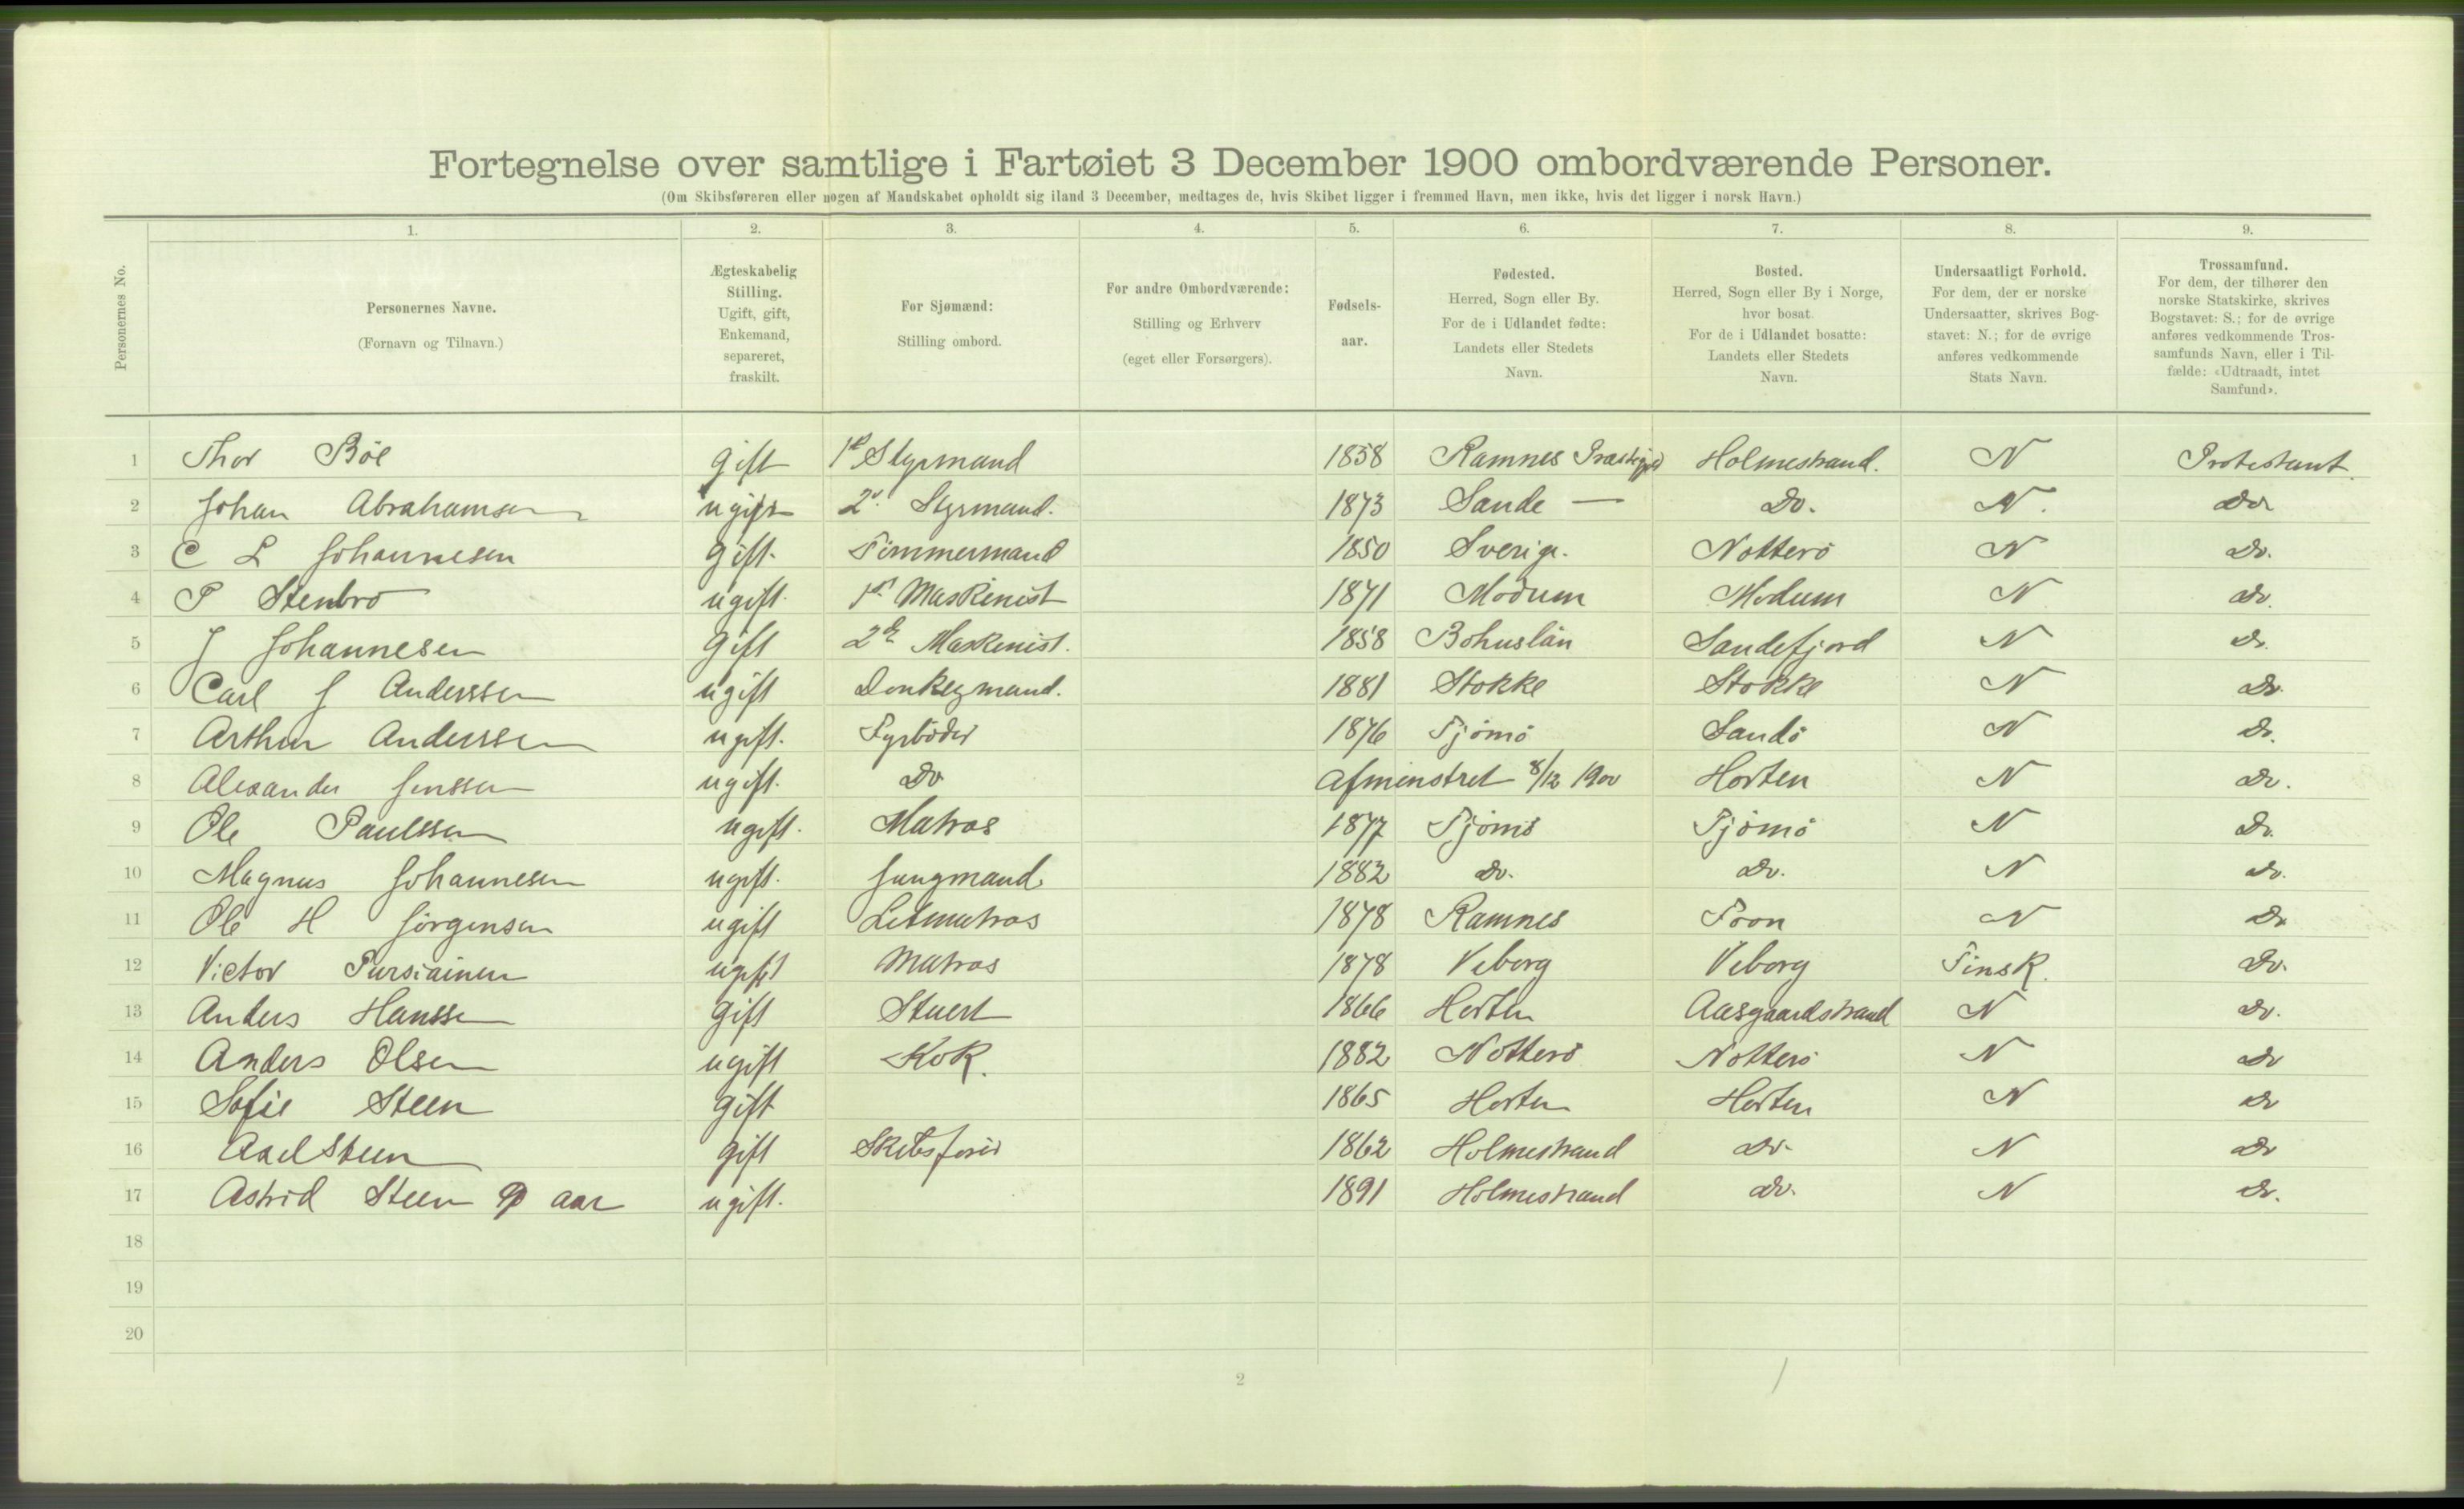 Fortegnelse over samtlige i Fartøiet 3 December 1900 ombordværende Personer.
(Om Skibsføreren eller nogen af Mandskabet opholdt sig iland 3 December, medtages de, hvis Skibet ligger i fremmed Havn, men ikke, hvis det ligger i norsk Havn.)
Personernes No.
1. 2. 3. 4. 5. 6. 7. 8. 9.
Personernes Navne.
(Fornavn og Tilnavn.)
Ægteskabelig
Stilling.
Ugift, gift,
Enkemand,
separeret,
fraskilt.
For Sjømænd:
Stilling ombord.
For andre Ombordværende:
Stilling og Erhverv
(eget eller Forsørgers).
Fødsels-
aar.
Fødested.
Herred, Sogn eller By.
For de i Udlandet fødte:
Landets eller Stedets
Navn.
Bosted.
Herred, Sogn eller By i Norge,
hvor bosat.
For de i Udlandet bosatte:
Landets eller Stedets
Navn.
Undersaatligt Forhold.
For dem, der er norske
Undersaatter, skrives Bog-
stavet: N.; for de øvrige
anføres vedkommende
Stats Navn.
Trossamfund.
For dem, der tilhører den
norske Statskirke, skrives
Bogstavet: S.; for de øvrige
anføres vedkommende Tros-
samfunds Navn, eller i Til-
fælde: «Udtraadt, intet
Samfund».
1 Thor Böe gift 1st Styrmand 1858 Ramnes Præstegjeld Holmestrand. N Protestant.
2 Johan Abrahamsen ugift 2. Styrmand. 1873 Sande — Do. N. Do
3 C L Johannesen gift. Timmermand 1850 Sverige. Nötterö N Do.
4 P Stenbro ugift. 1st Maskinist 1871 Modum Modum N Do.
5 J Johannesen gift 2de Maskinist. 1858 Bohuslän Sandefjord N Do.
6 Carl J Anderssen ugift Donkeymand. 1881 Stokke Stokke N Do.
7 Arthur Anderssen ugift. Fyrböder 1876 Tjömö Sandö N Do.
8 Alexander Jenssen ugift. Do Afmönstret 8/12 1900 Horten N Do.
9 Ole Paulssen ugift. Matros 1877 Tjömö Tjömö N Do.
10 Magnus Johannesen ugift. Jungmand 1882 Do. Do. N Do.
11 Ole H Jörgensen ugift Letmatros 1878 Ramnes Foon N Do
12 Victor Pursiainen ugift Matros 1878 Viborg Viborg Finsk. Do.
13 Anders Hanssen gift Stuert 1866 Horten Aasgaardstrand N Do.
14 Anders Olsen ugift Kok. 1882 Nötterö Nötterö N Do
15 Sofie Steen gift 1865 Horten Horten N Do
16 Axel Steen gift Skibsförer 1862 Holmestrand Do. N Do
17 Astrid Steen 9 aar ugift. 1891 Holmestrand Do. N Do.
18
19
20
2